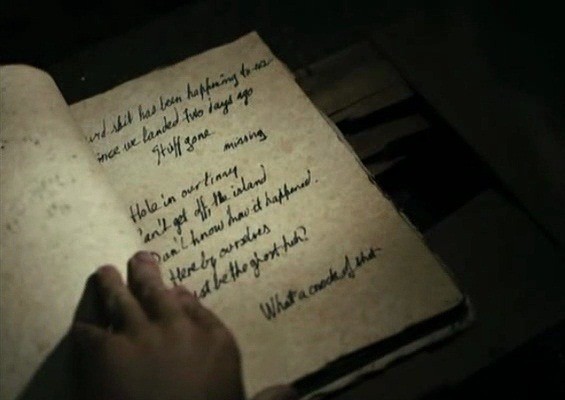 ird shit has been happening to us
ince we landed two days ago
Stuff gone missing
Hole in our tinny
an't get off the island
Don't know how it happened.
Here by ourselves
ust be the ghost huh?
What a crock of shit